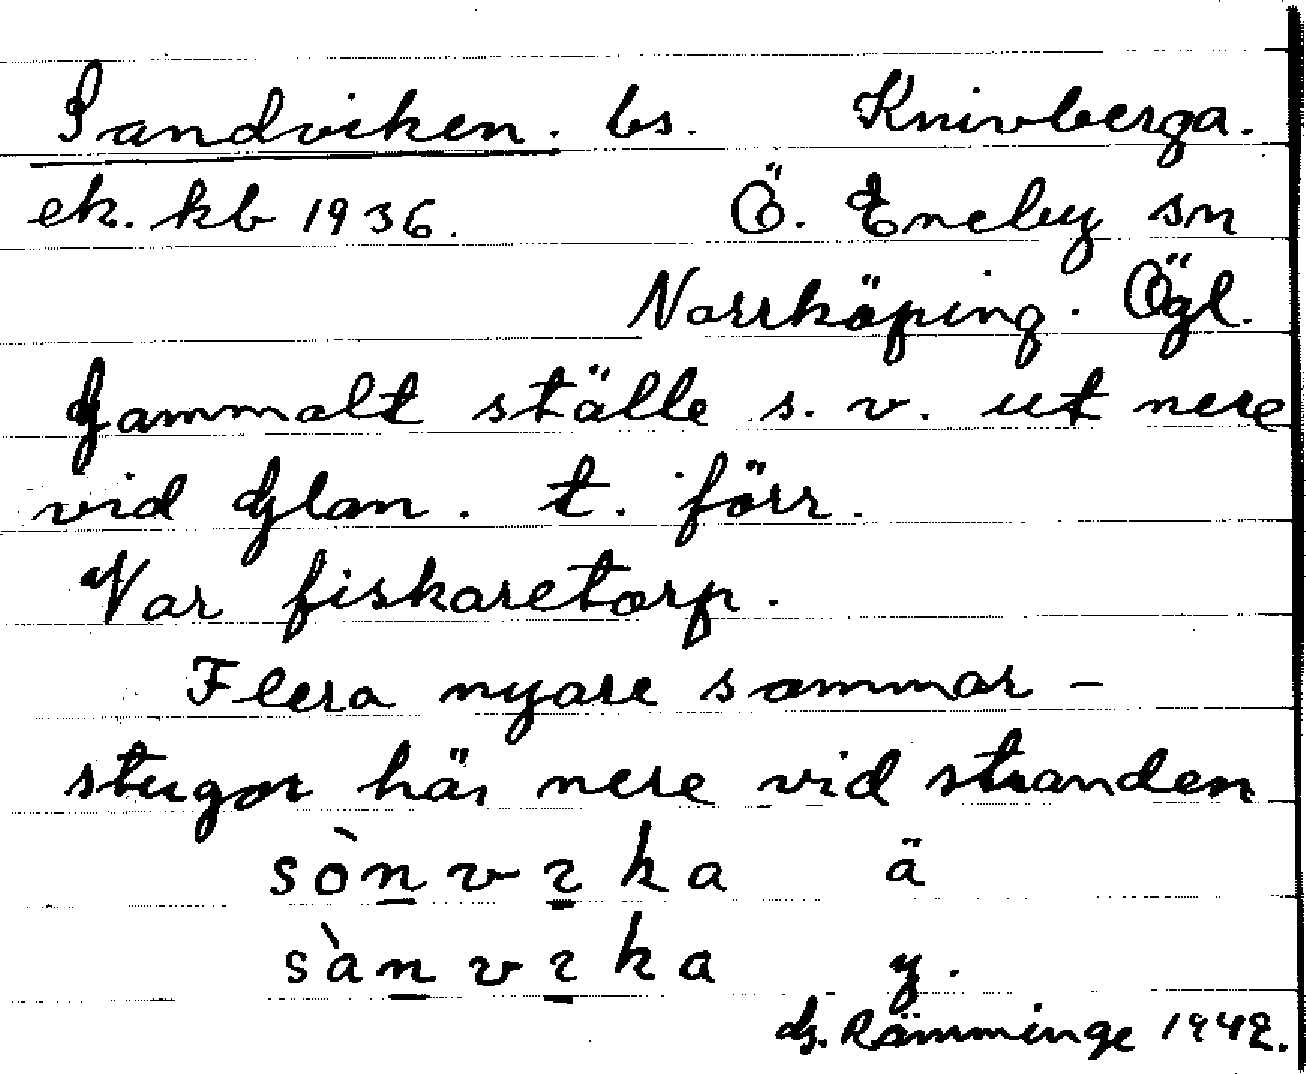 Sandviken. bs. Knivberga.
ek. kb 1936. Ö. Eneby sn
Norrköping. Ögl.
Gammalt ställe s. v. ut nere
vid Glan. t. förr.
Var fiskaretorp.
Flera nyare sommar-
stugor här nere vid stranden
sònvıka ä
sànvıka y.
G. Rämminge 1942.